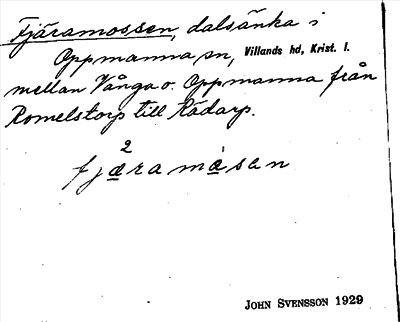 Fjäramossen, dalsänka i
Oppmanna sn, Villands hd, Krist. l.
mellan Vånga o. Oppmanna från
Romelstorp till Rådarp.
2
fjæramåsan
JOHN SVENSSON 1929